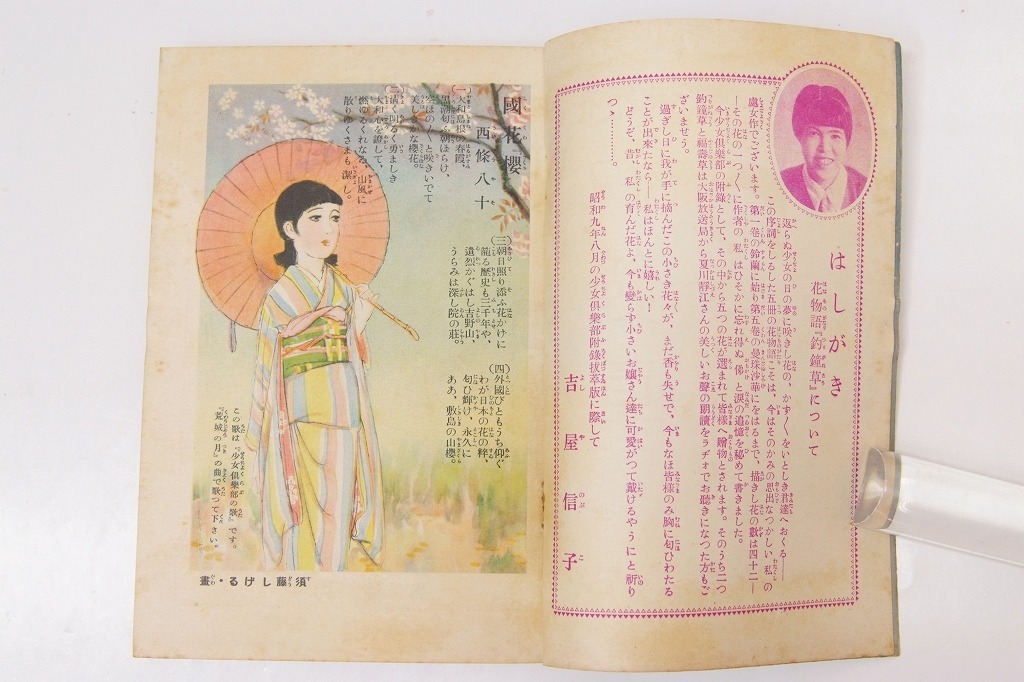 はしがき
花物語『釣鐘草』について
返らぬ少女の日の夢に咲きし花の、かず〳〵をいとしき君達へおくる――
この序詞をしるした五册の花物語こそは、今はそのかみの思出なつかしい、私の
處女作でございます。第一卷の鈴蘭に始り第五卷の曼珠沙華にをはるまで、描きし花の數は四十二―
―その花の一つ〳〵に作者の私はひそかに忘れ得ぬ俤と涙の追憶を秘めて書きました。
今、少女倶樂部の附錄として、その中から五つの花が選まれて皆樣へ贈物とされます。そのうち二つ
釣鐘草と福壽草は大阪放送局から夏川靜江さんの美しいお聲の朗讀をラヂオでお聽きになつた方もご
ざいませう。
過ぎし日に我が手に摘んだこの小さき花々が、まだ香も失せで、今もなほ皆樣のみ胸に匂ひわたる
ことが出來たなら――私はほんとに嬉しい！
どうぞ、昔、私の育んだ花よ、今も變らず小さいお孃さん達に可愛がつて戴けるやうにと祈り
つゝ……。
昭和九年八月の少女倶樂部附錄拔萃版に際して
吉屋信子
國花「櫻」
西條八十
(一)大和島根の春霞、
黑潮匂ふ朝ぼらけ、
空ほの〴〵と咲きいでて
美しきかな櫻花。
(二)清く明るく勇ましき
大和心を證して、
燃ゆるくれなゐ、山風に
散りゆくさまも潔し。
(三)朝日照り添ふ花かげに
薫る歷史も三千年や、
遺烈かぐはし吉野山、
うらみは深し院の莊。
(四)外國びともうち仰ぐ
わが日本の花の粹、
匂ひ輝け、永久に
ああ、敷島の山櫻。
この歌は『少女倶樂部の歌』です。
『荒城の月』の曲で歌つて下さい。
須藤しげる・畫